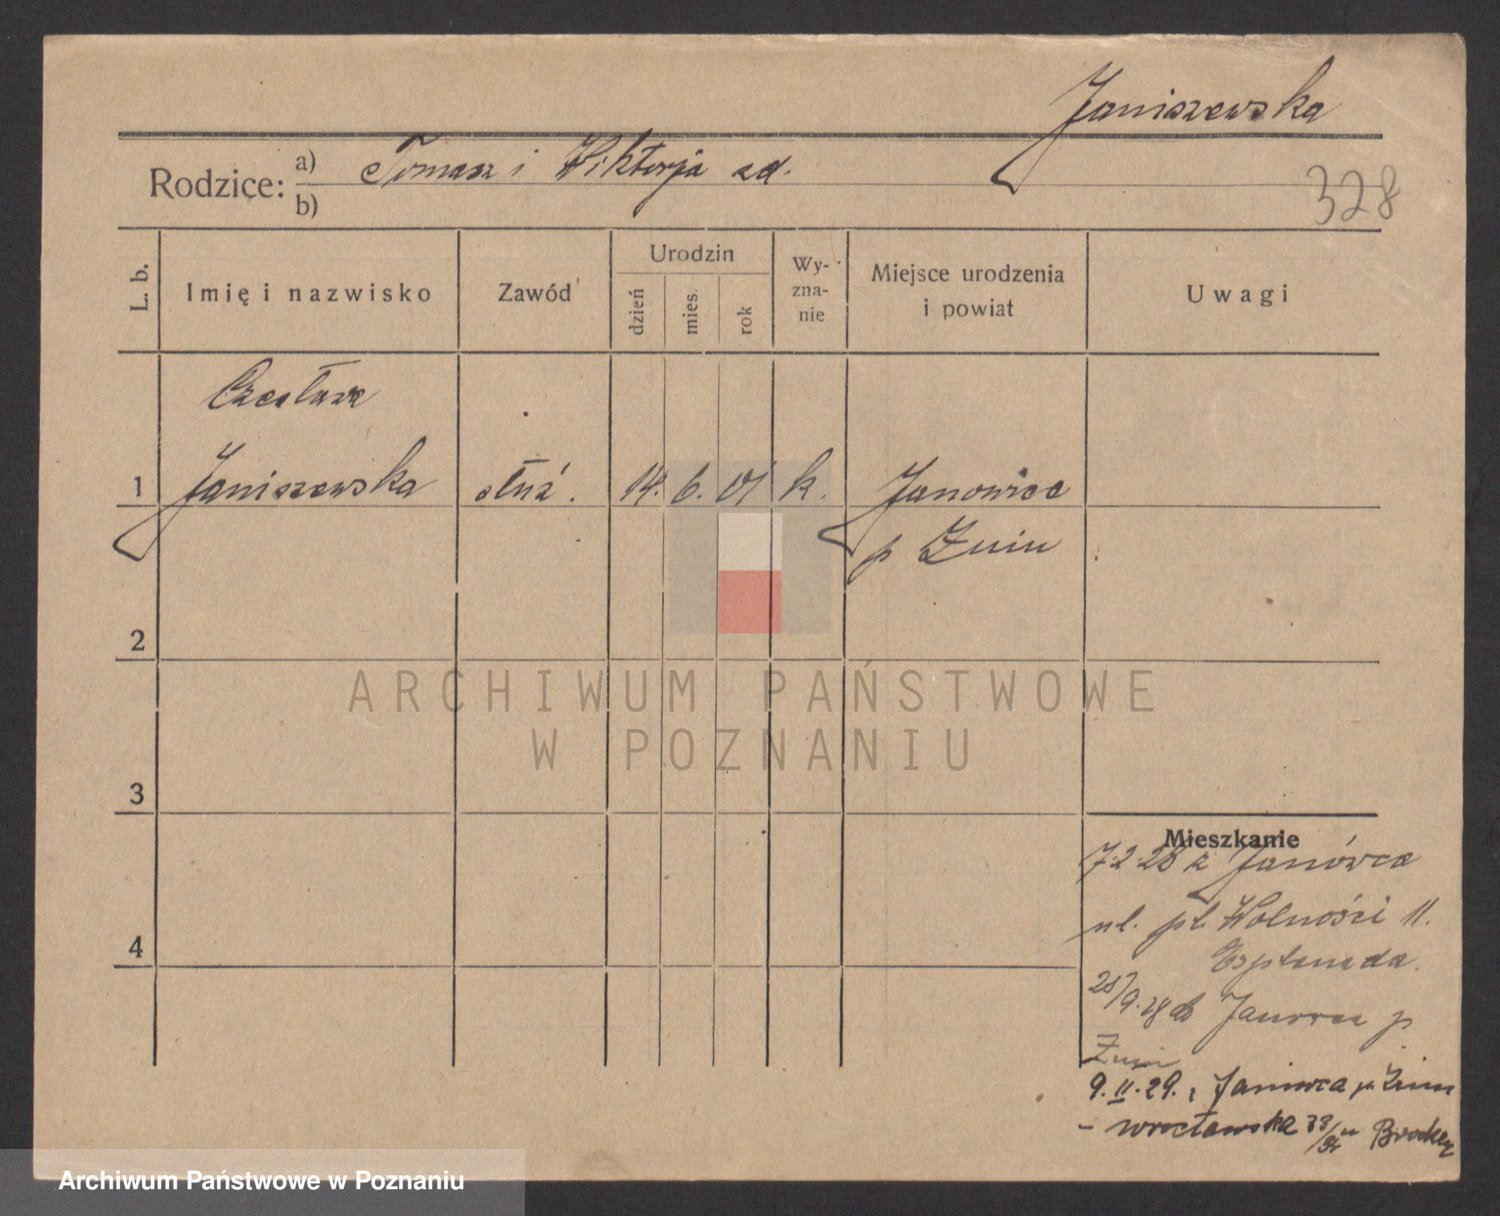 Janiszewska
Rodzice: a) Tomasz i Wiktorja zd.
b)
328
L. b.
Imię i nazwisko
Zawód
Urodzin
dzień
mies.
rok
Wy-
zna-
nie
Miejsce urodzenia
i powiat
Uwagi
Czesława
1 Janiszewska służ. 14. 6. 01 k. Janowiec
p Żnin
2
3
4
Mieszkanie
7.2.28 z Janówca
ul. pl. Wolności 11.
Esplanada.
9.28 do Janowca p
Żnin
9.II.29. z Janówca p. Żnin
- Wrocławska u
ARCHIWUM PAŃSTWOWE
W POZNANIU
Archiwum Państwowe w Poznaniu